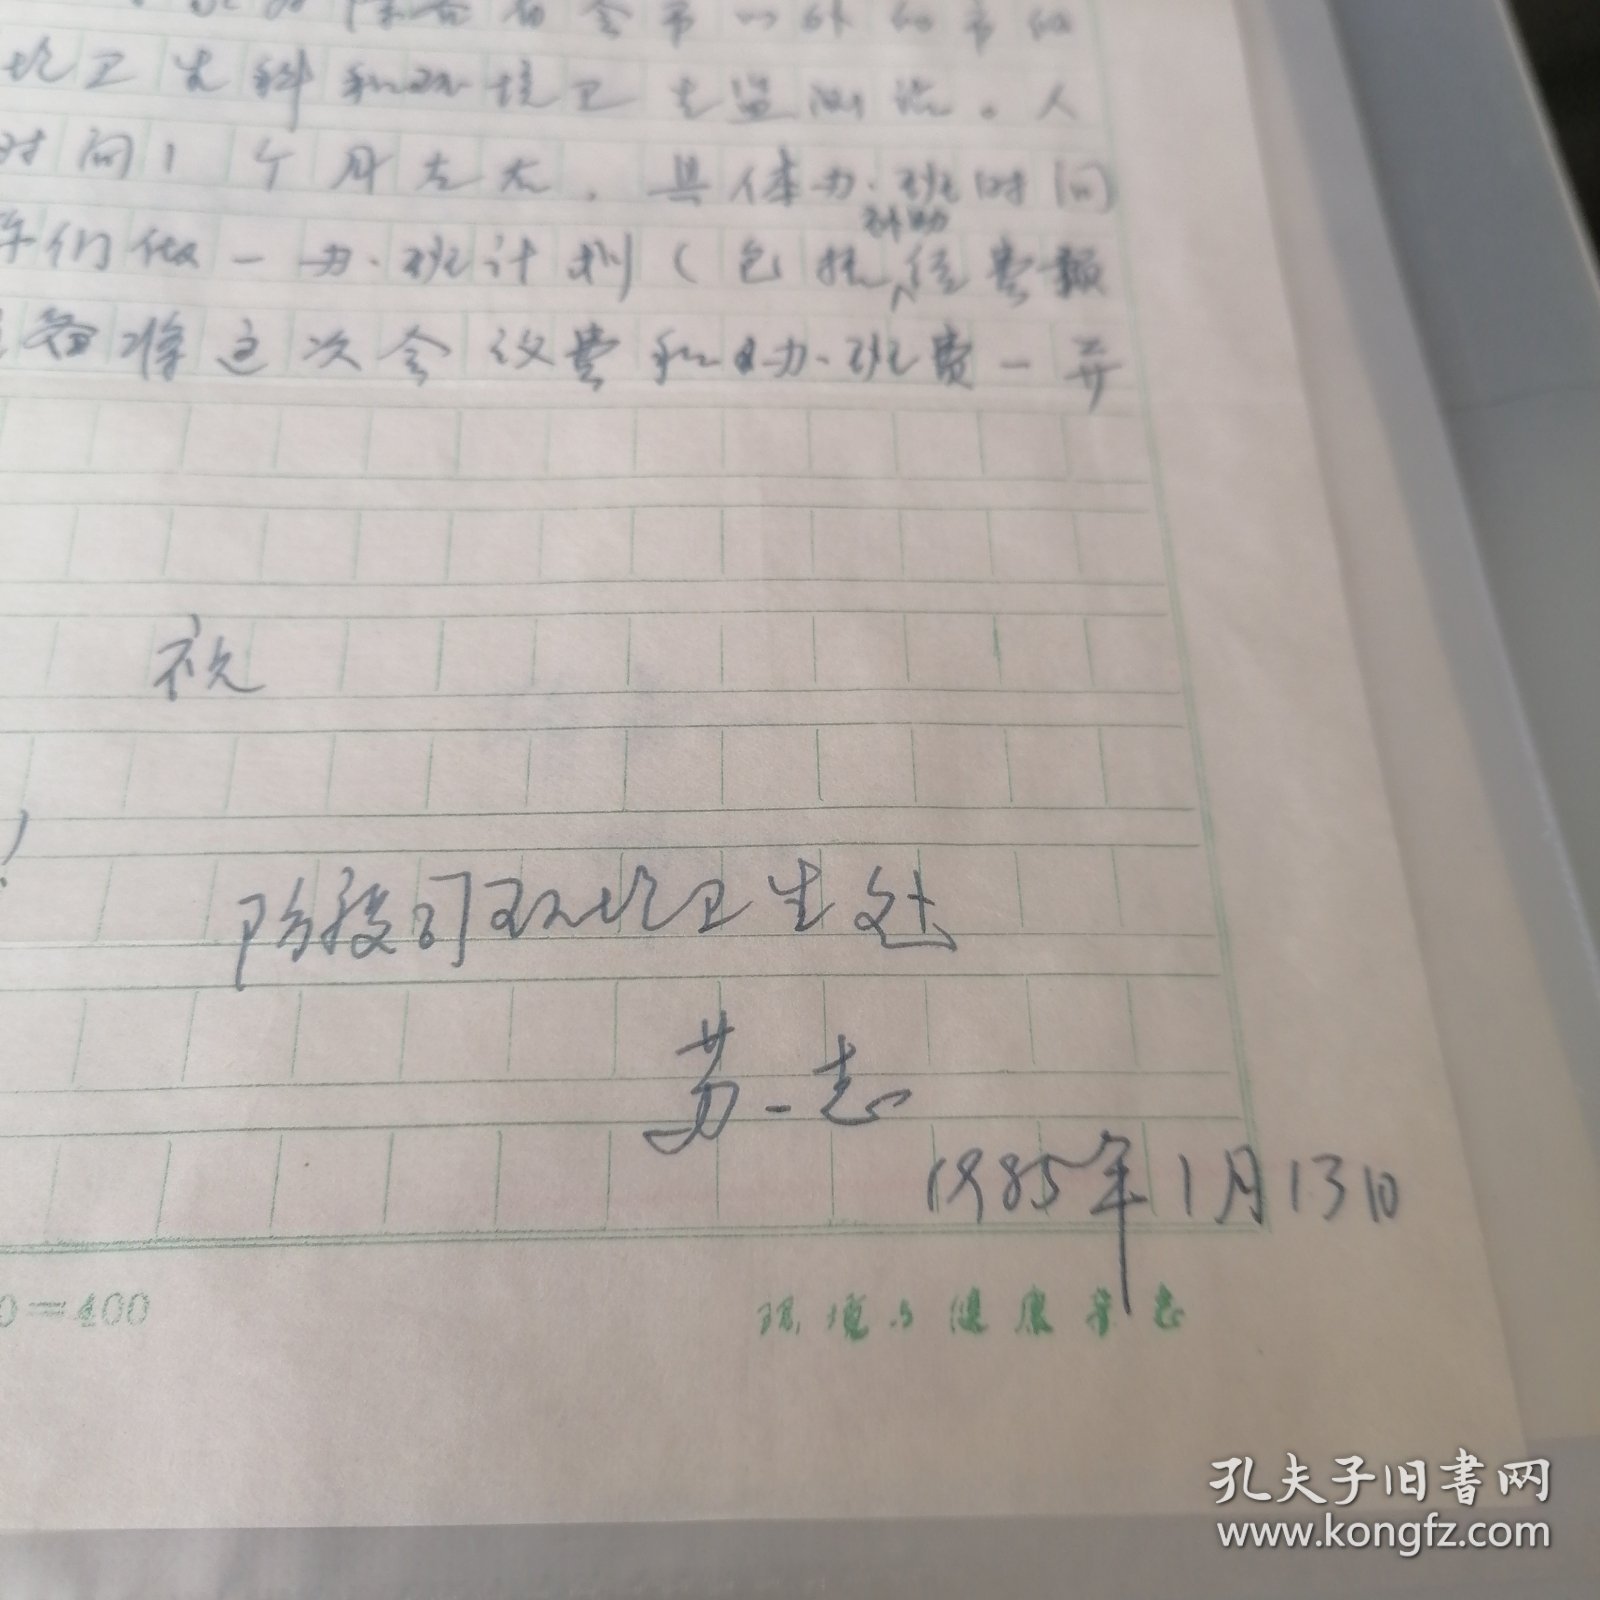 除各省会市以外的市的
坟卫生科和环境卫生监测站。人
时间1个月左右。具体办班时间
补助
你们做一办班计划(包括经费额
准备将这次会议费和办班费一并
祝
！
防疫司环境卫生处
苏志
1985年1月13日
0=400
环境与健康杂志
孔夫子旧书网
www.kongfz.com